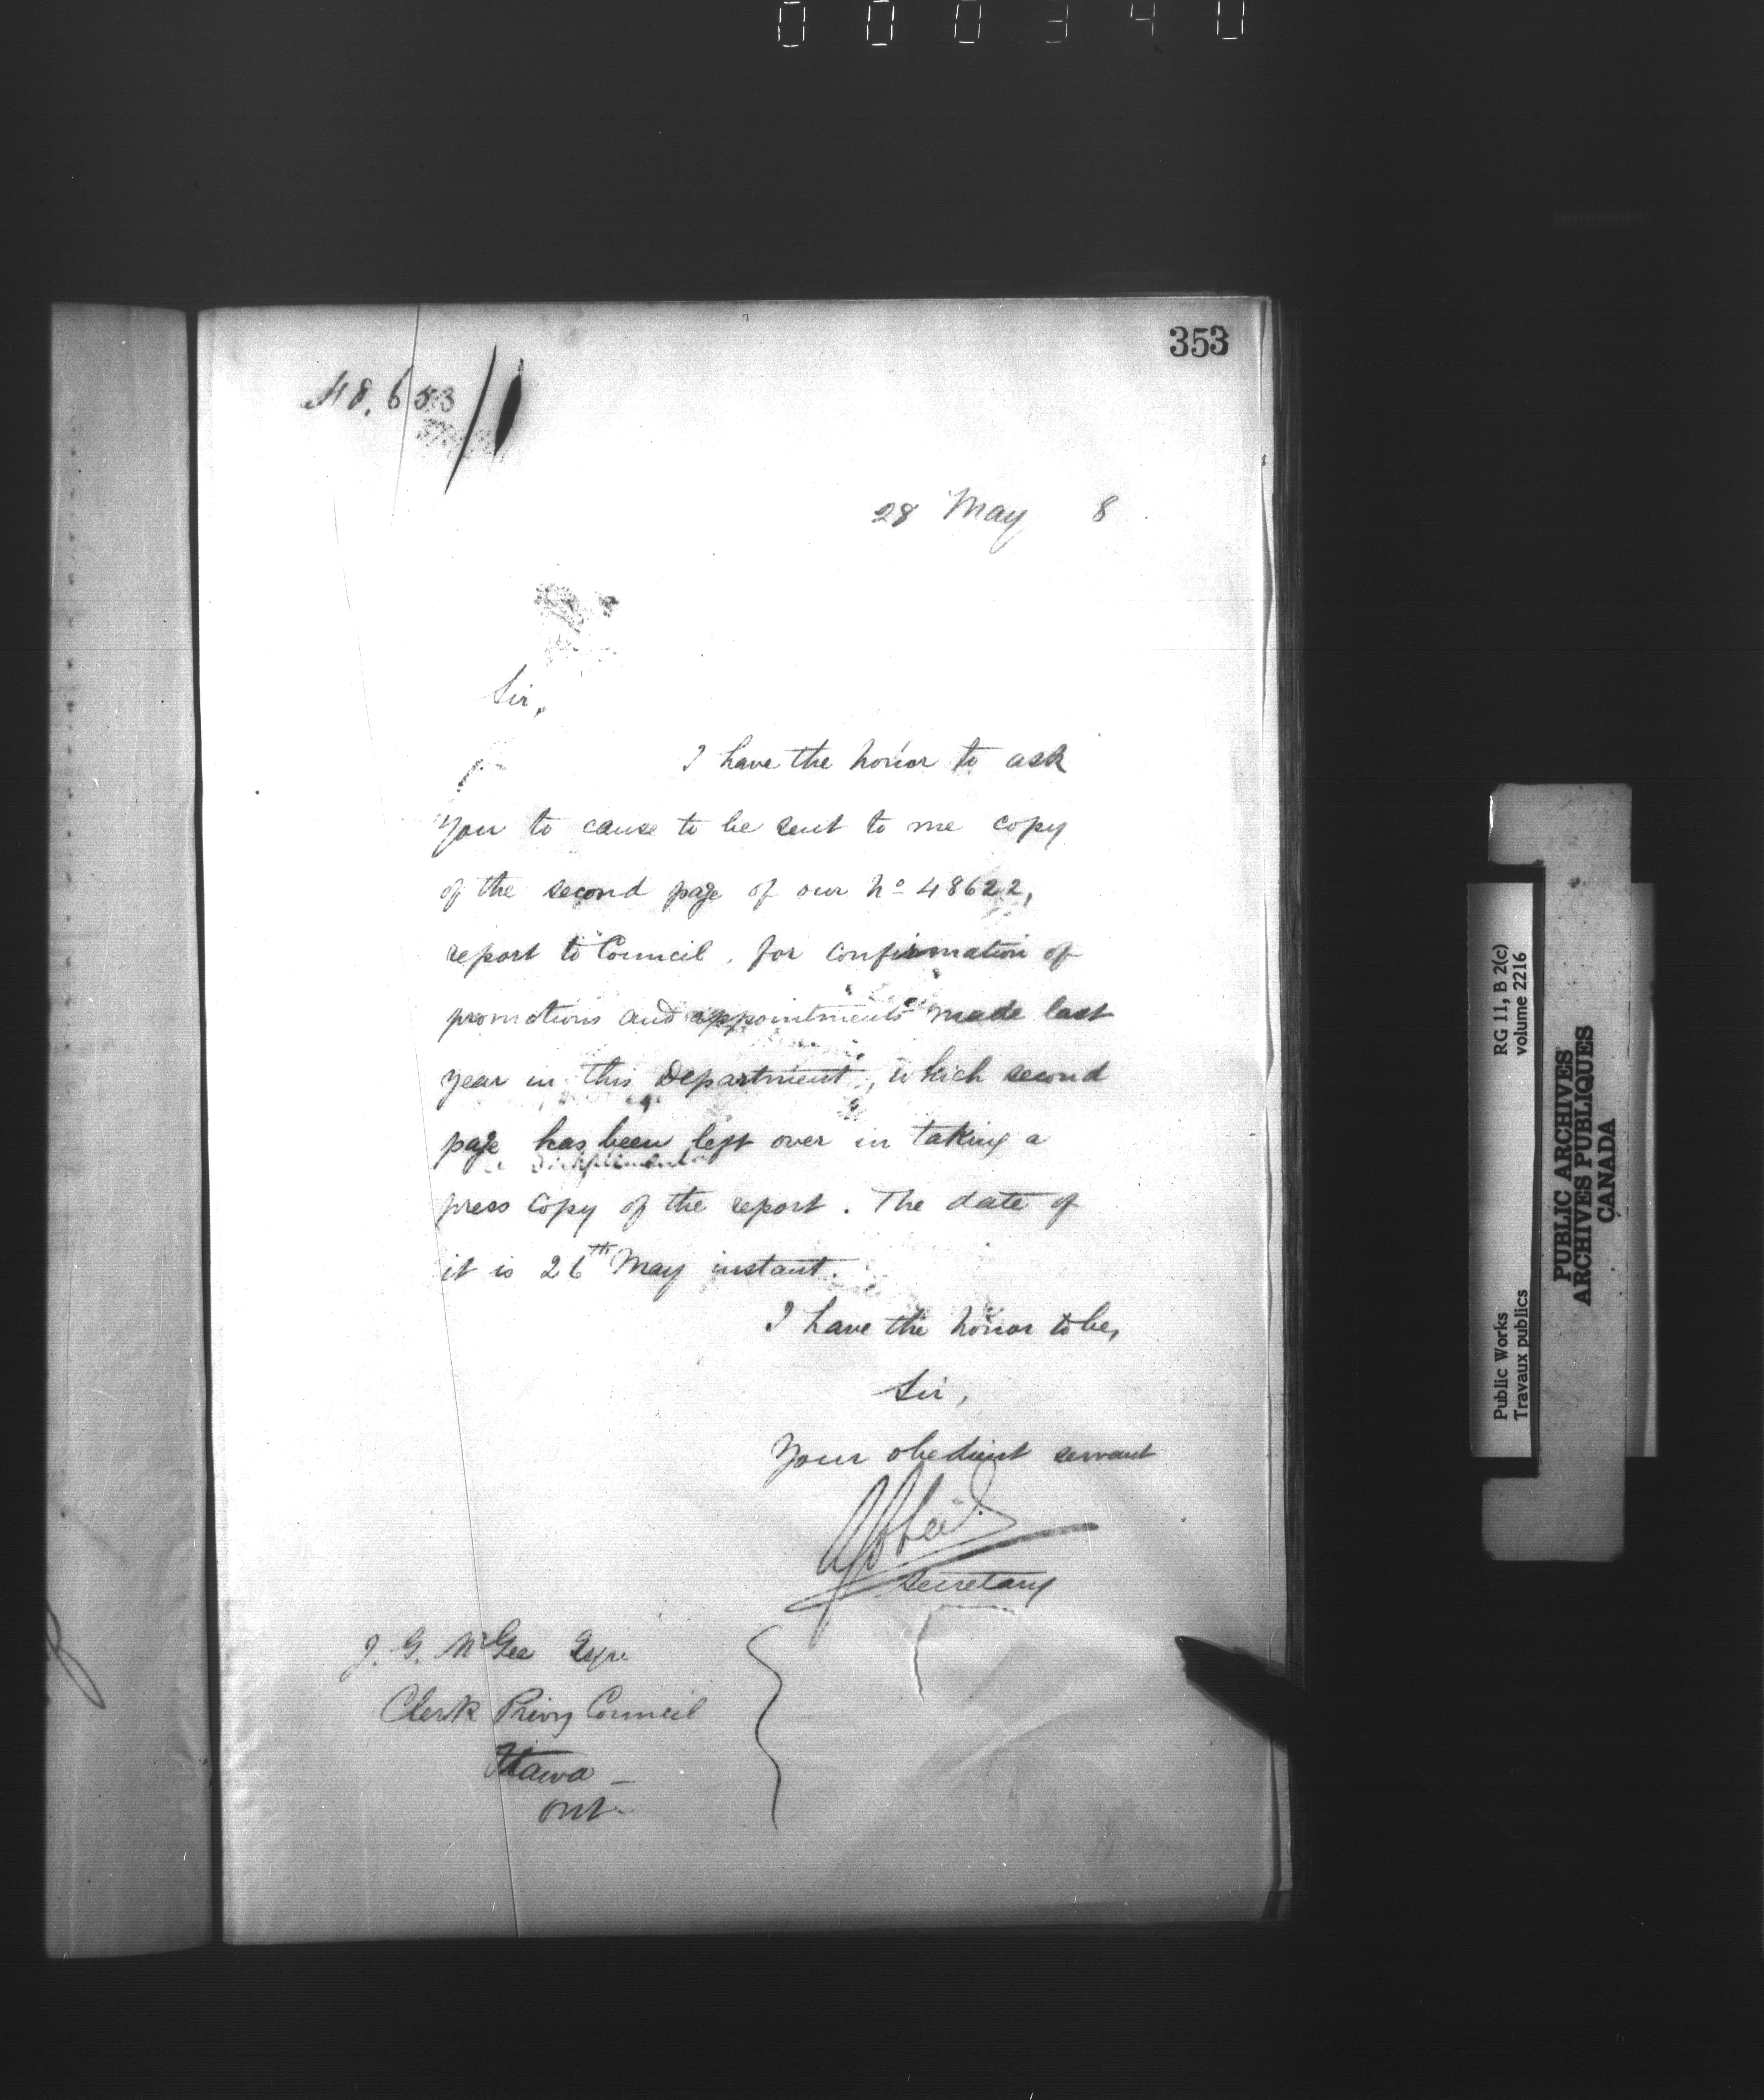 000340
353
48.653
28 May 8
Sir,
I have the honor to ask
you to cause to be sent to me copy
of the second page of our No 48622,
report to Council, for confirmation of
promotions and appointments made last
year in this Department, which second
page has been left over in taking a
press copy of the report. The date of
it is 26th May instant.
I have the honor to be,
Sir,
Your obedient servant
Secretary
J. G. McGee Esqre
Clerk Privy Council
Ottawa –
Ont –
RG 11, B 2(c)
volume 2216
Public Works
Travaux publics
PUBLIC ARCHIVES
ARCHIVES PUBLIQUES
CANADA